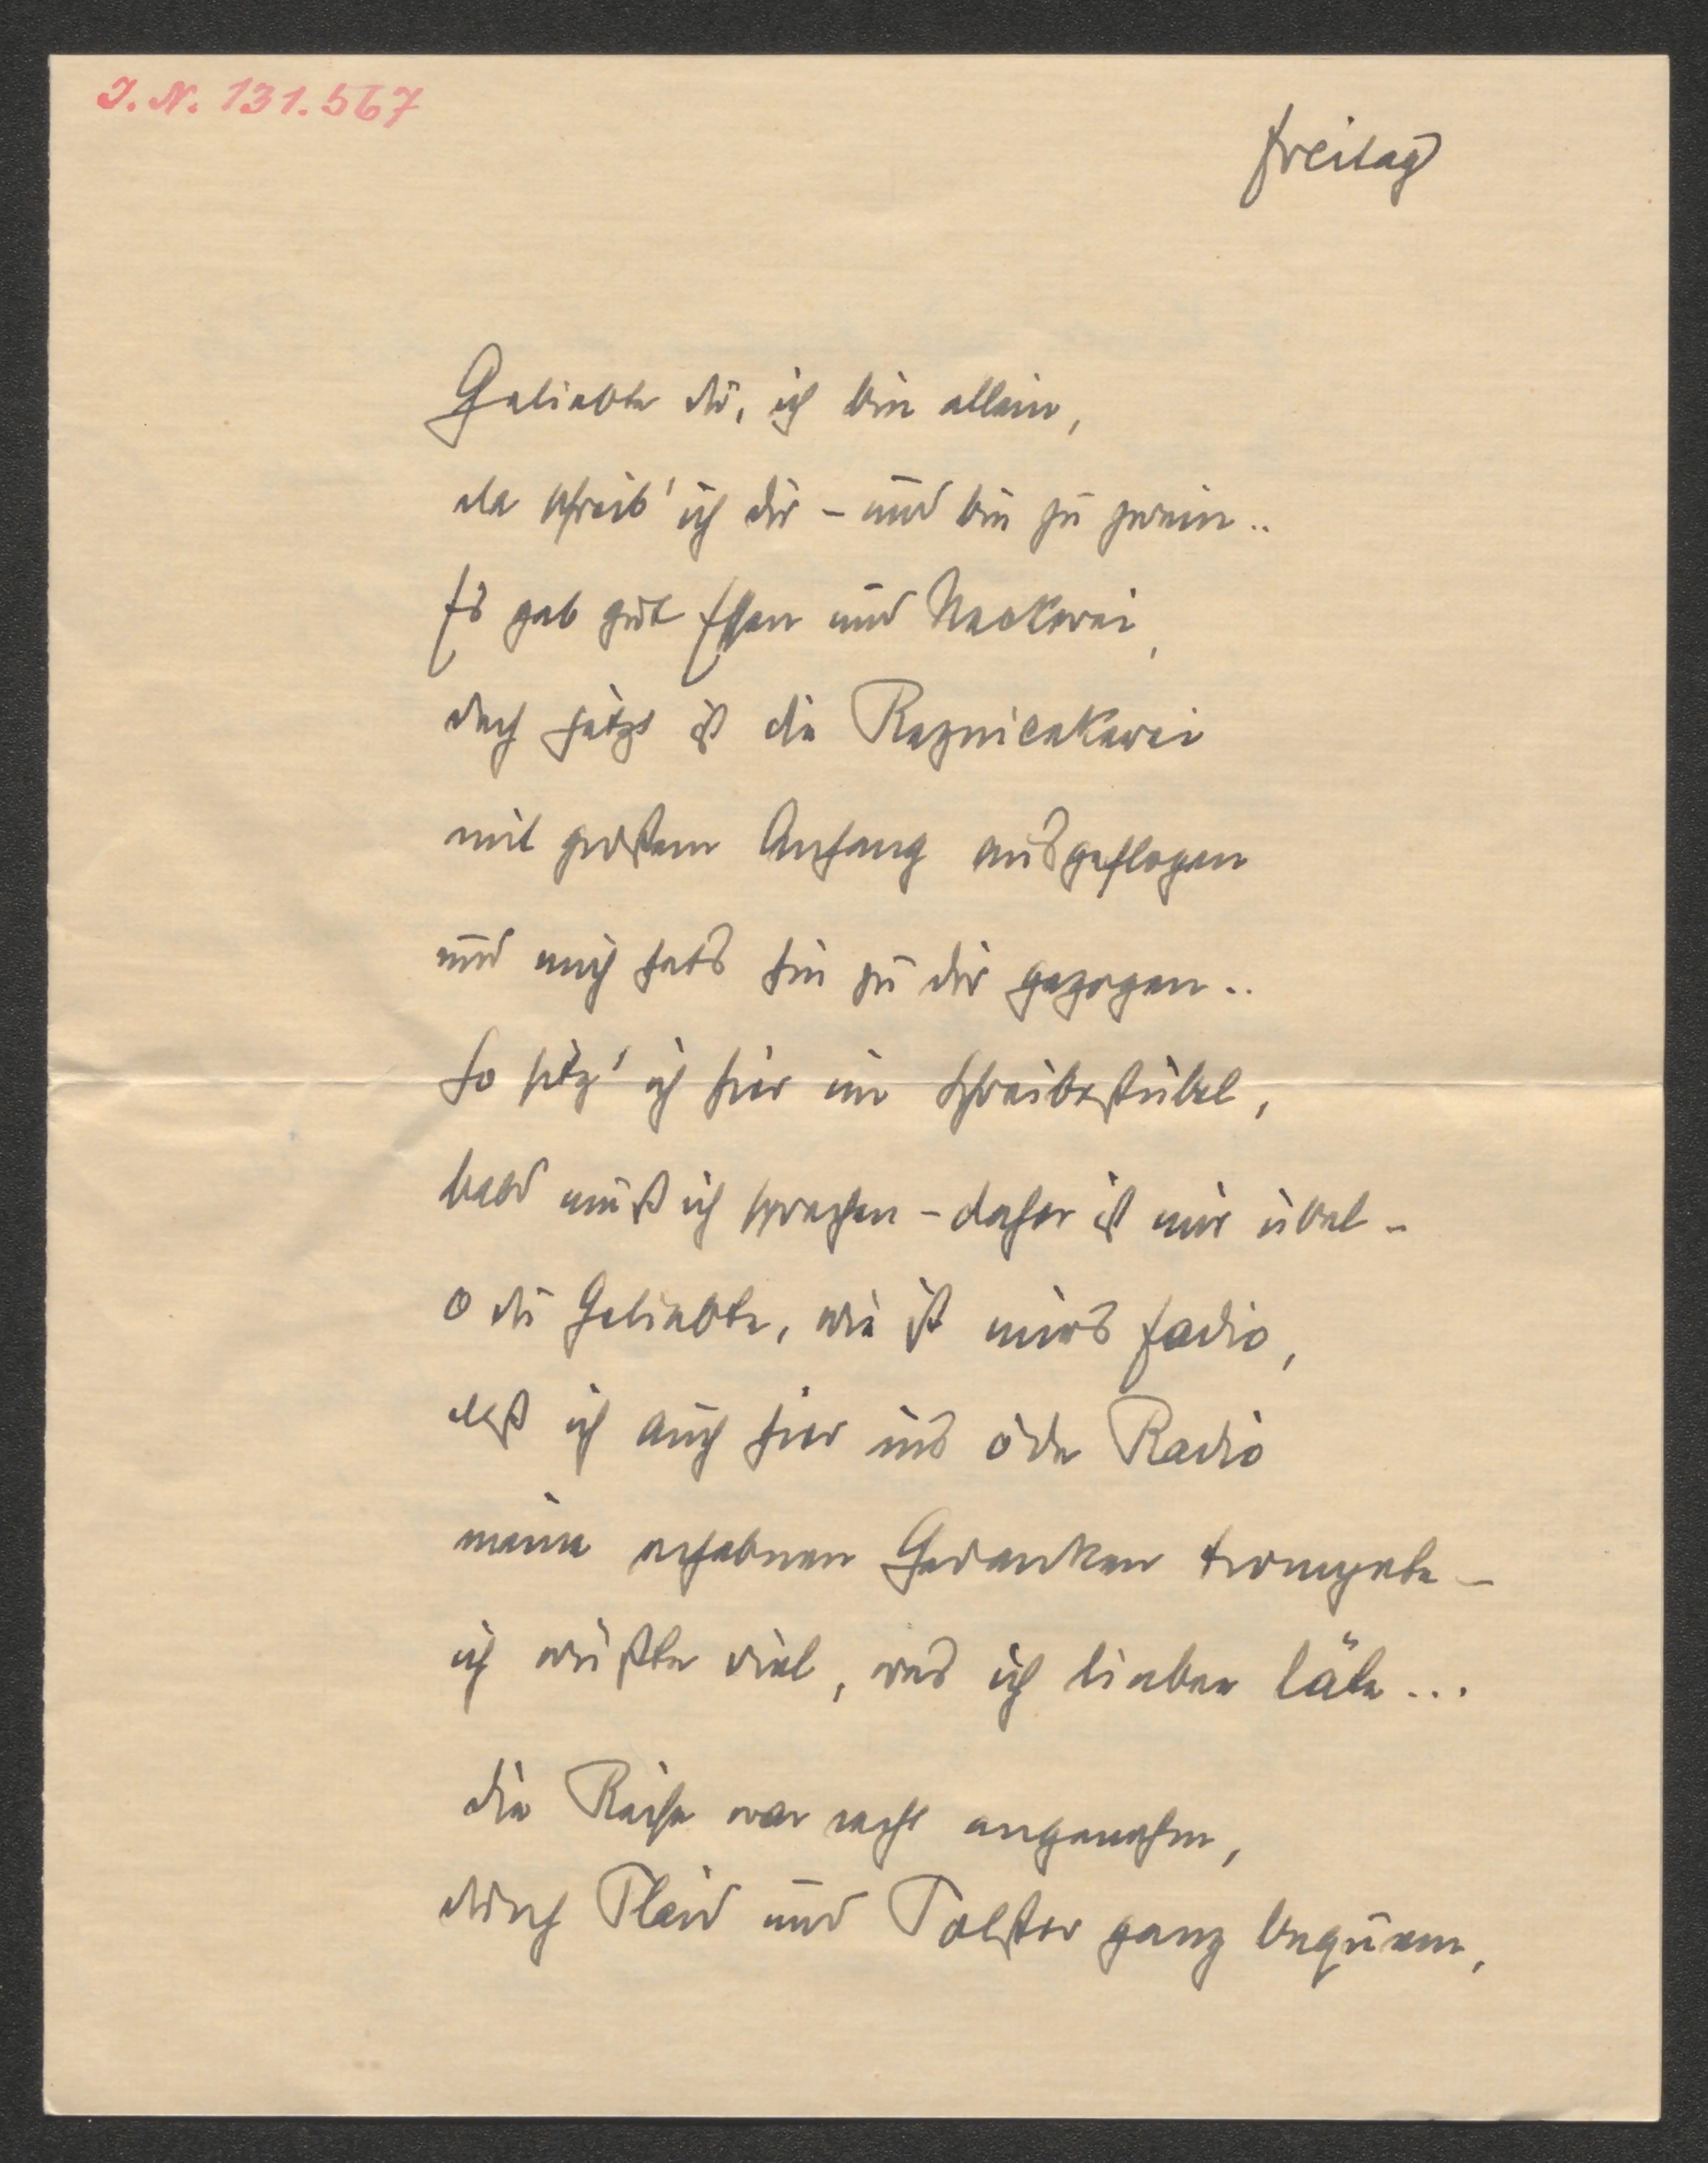 I. N. 131.567
Freitag
Geliebte du, ich bin allein,
da schreib' ich dir – und bin zu zwein ..
Es gab gut Essen und Neckerei,
doch jetzt ist die Reznicekerei
mit großem Anhang ausgeflogen
und mich hats hin zu dir gezogen ..
So sitz' ich hier im Schreibestübel,
bald muß ich sprechen – daher ist mir übel –
O du Geliebte, wie ist mirs fadio,
daß ich auch hier ins öde Radio
meine erhabnen Gedanken trompete –
ich wüßte viel, was ich lieber täte ...
Die Reise war recht angenehm,
durch Plaid und Polster ganz bequem,